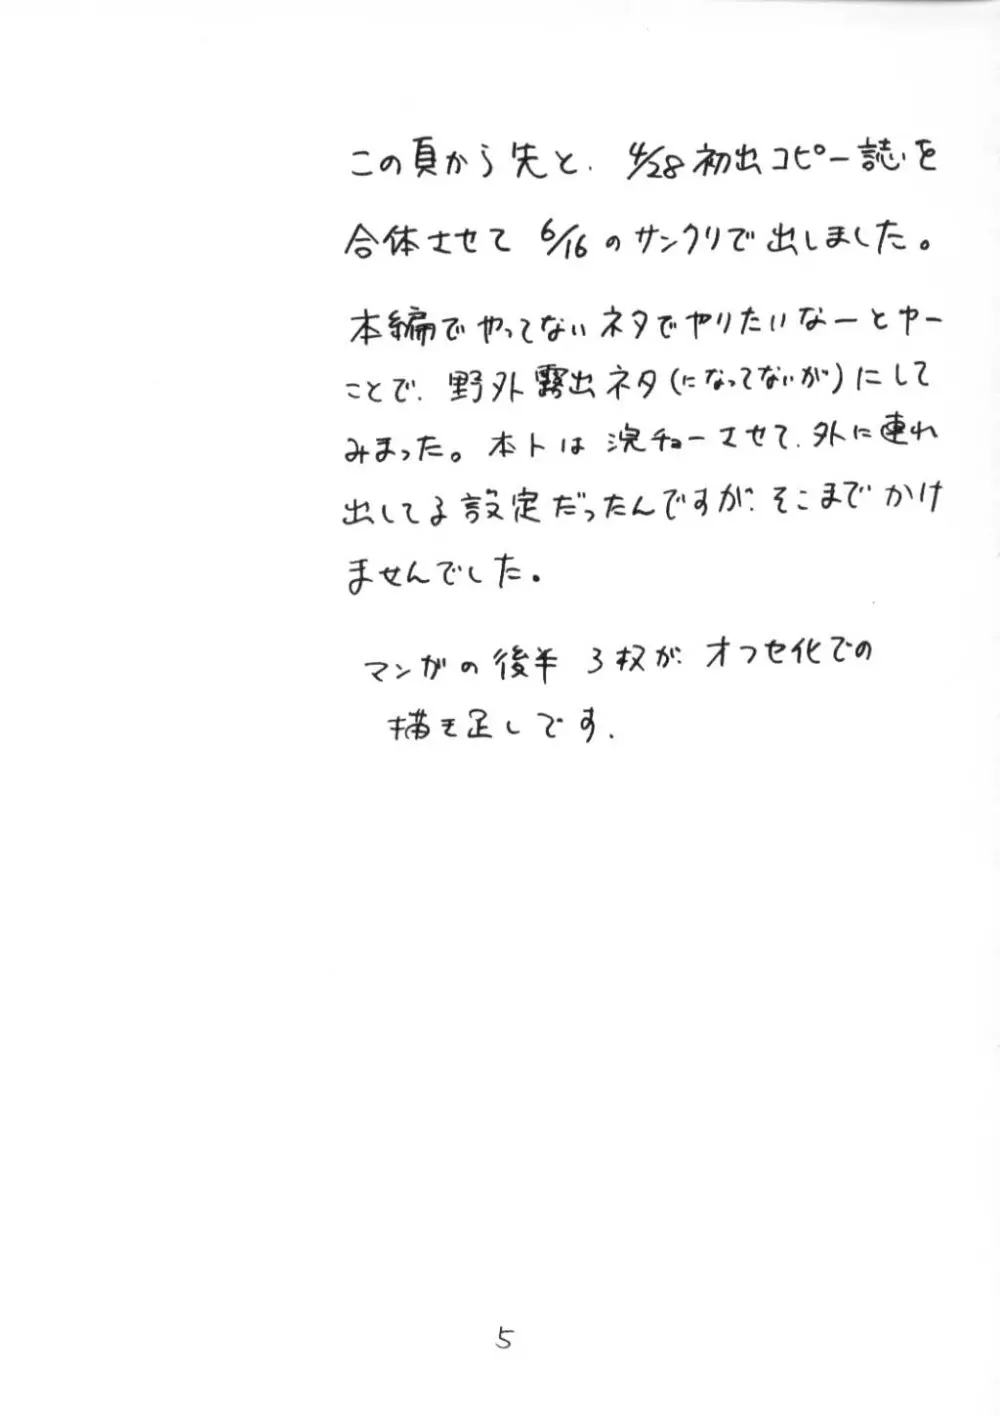 この頁から先と、4/28初出コピー誌を
合体させて 6/16のサンクリで出しました。
本編でやってないネタでやりたいなーとゆー
ことで、野外露出ネタ(になってないが)にして
みまった。本トは浣チョーさせて、外に連れ
出してる設定だったんですが、そこまでかけ
ませんでした。
マンガの後半 3枚が、オフセ化での
描き足しです.
5